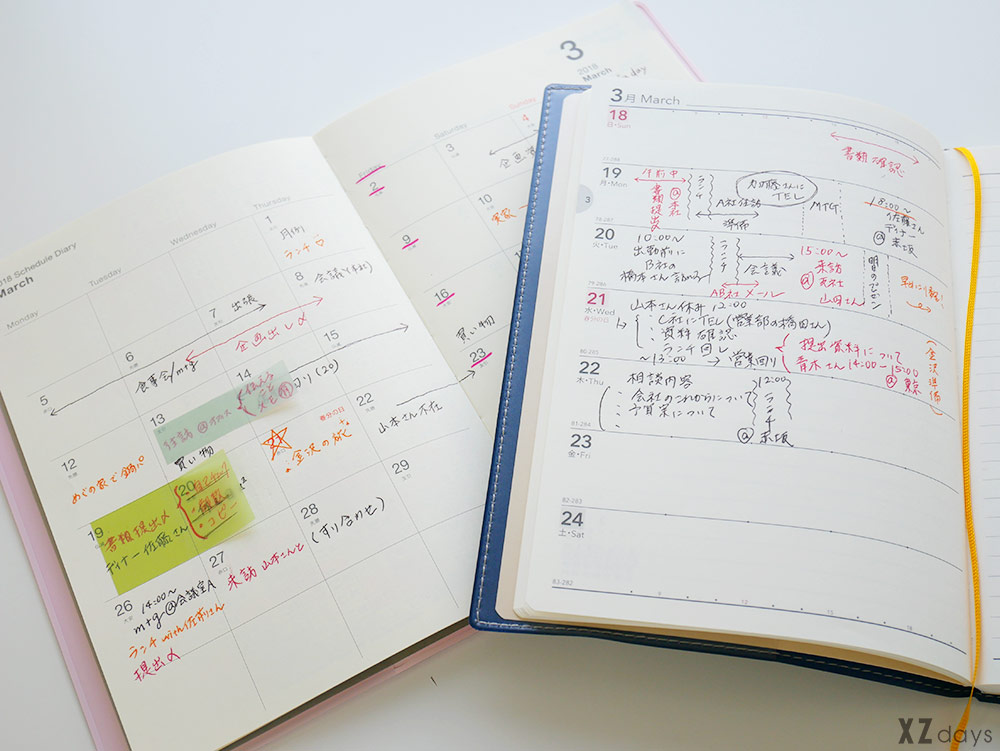 2018 Schedule Diary
March
Monday
Tuesday
Wednesday
Thursday
Saturday
Sunday
3
2018
March
1
ランチ♡
2
3
4
5
6
7 出張
8
会議(本社)
企画出し〆
食事会/mtg
9
10
12
13
14
15
16
買い物
19
書類提出〆
ディナー佐藤さん
20
コピー
春分の日
金沢の旅
22
山本さん不在
23
買い物
26
14:00~
mtg@会議室A
ランチwith佐前さん
提出〆
27
来訪 山本さんと
28
(すり合わせ)
29
3月 March
18
日・Sun
書類確認
77-288
19
月・Mon
午前中
書類提出〆
@本社
ランチ
A社往訪
準備
加藤さんに
TEL
MTG
18:00~
佐藤さん
ディナー
@赤坂
3
78-287
20
火・Tue
10:00~
出勤前に
B社の
ランチ
会議
AB社メール
15:00~
来訪
@支社
山田さん
明日のプレゼン
79-286
21
水・Wed
春分の日
山本さん休み 12:00
・C社にTEL(営業部の橋田さん)
・資料確認
ランチ回し
~13:00 → 営業回り
提出資料について
青木さん14:00-15:00
@東京
(金沢準備)
80-285
22
木・Thu
相談内容
・会社のこれからについて
・予算案について
12:00
ランチ
@赤坂
81-284
23
金・Fri
82-283
24
土・Sat
83-282
XZ days